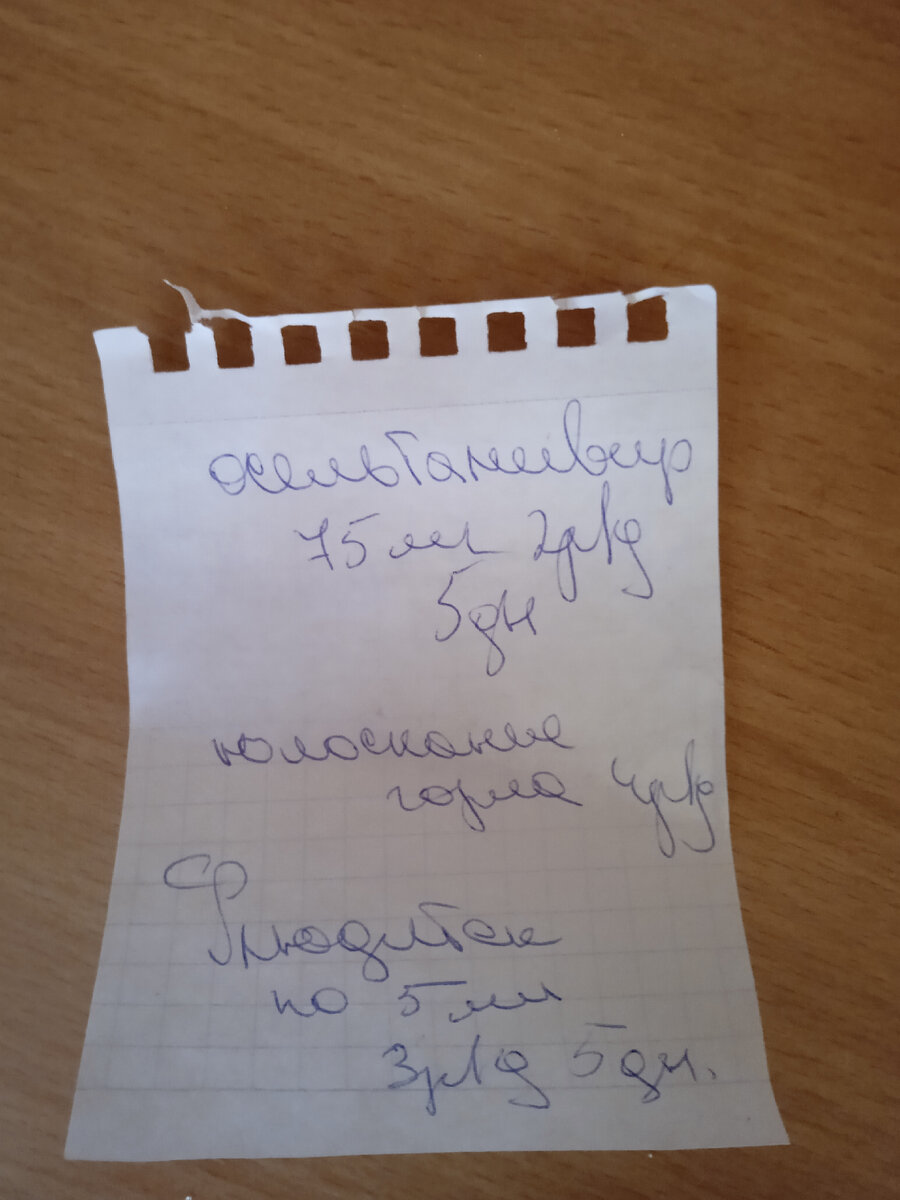 осельтамивир
75 мг 2р/д
5дн
полоскание
горла 4р/д
Флюдитек
по 5 мл
3р/д 5 дн.